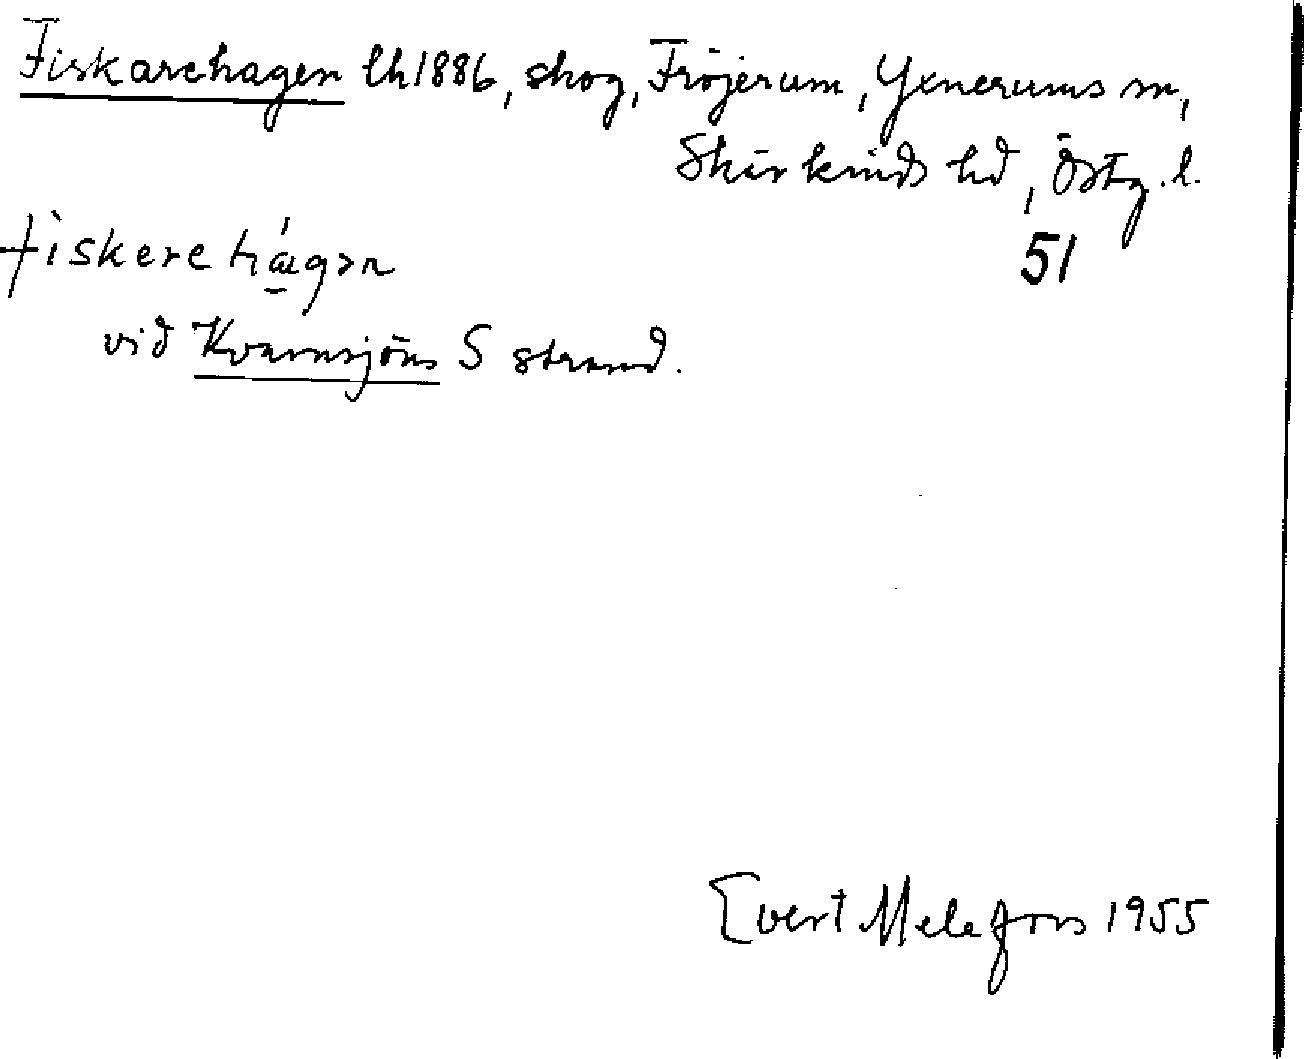 Fiskarehagen lh 1886, skog, Fröjerum, Yxnerums sn,
Skärkinds hd, Östg. l.
51
fiskerehágən
vid Kvarnsjöns S strand.
Evert Melefors 1955